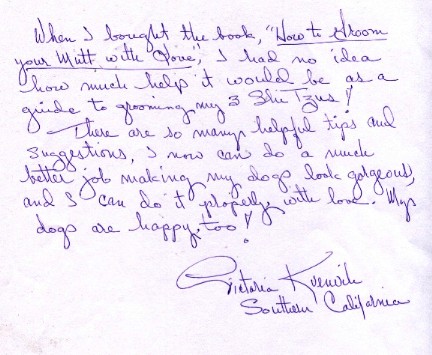 When I bought the book, "How to Groom
your Mutt with Love", I had no idea
how much help it would be as a
guide to grooming my 3 Shi Tzus!
There are so many helpful tips and
suggestions, I now can do a much
better job making my dogs look gorgeous,
and I can do it properly, with love. My
dogs are happy, too!
Victoria
Southern California